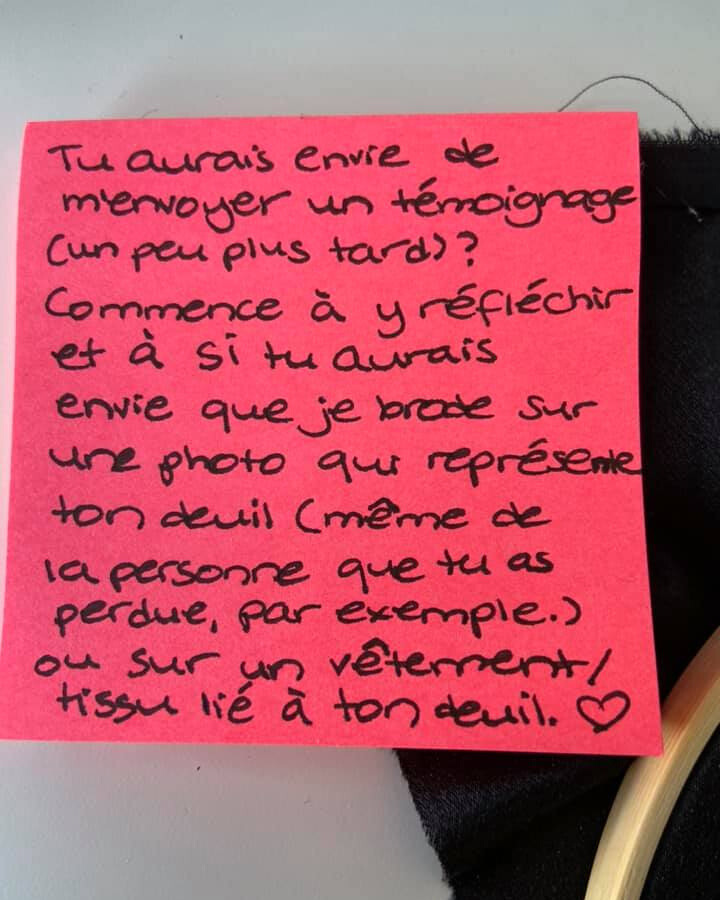 Tu aurais envie de
m'envoyer un témoignage
(un peu plus tard)?
Commence à y réfléchir
et à si tu aurais
envie que je brode sur
une photo qui représente
ton deuil (même de
la personne que tu as
perdue, par exemple.)
ou sur un vêtement/
tissu lié à ton deuil. ♡